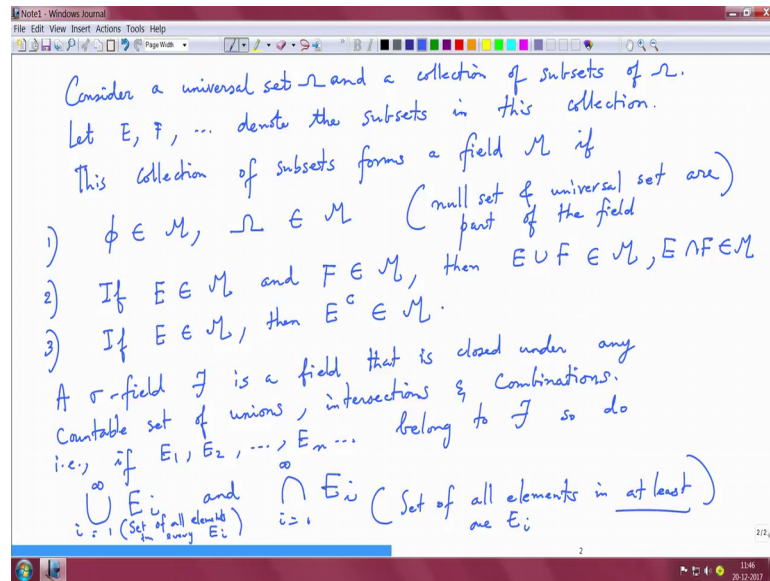 Note1 - Windows Journal
File Edit View Insert Actions Tools Help
Page Width
Consider a universal set Ω and a collection of subsets of Ω.
Let E, F, ... denote the subsets in this collection.
This collection of subsets forms a field M if
1) ϕ ∈ M, Ω ∈ M (null set & universal set are
part of the field)
2) If E ∈ M and F ∈ M, then E ∪ F ∈ M, E ∩ F ∈ M
3) If E ∈ M, then E^c ∈ M.
A σ-field F is a field that is closed under any
Countable set of unions, intersections & Combinations.
i.e., if E₁, E₂, ..., Eₙ ... belong to F so do
∞ ⋃ i=1 Eᵢ and ∞ ⋂ i=1 Eᵢ (Set of all elements in at least
(Set of all elements in every Eᵢ) one Eᵢ)
2/2
2
11:46
20-12-2017